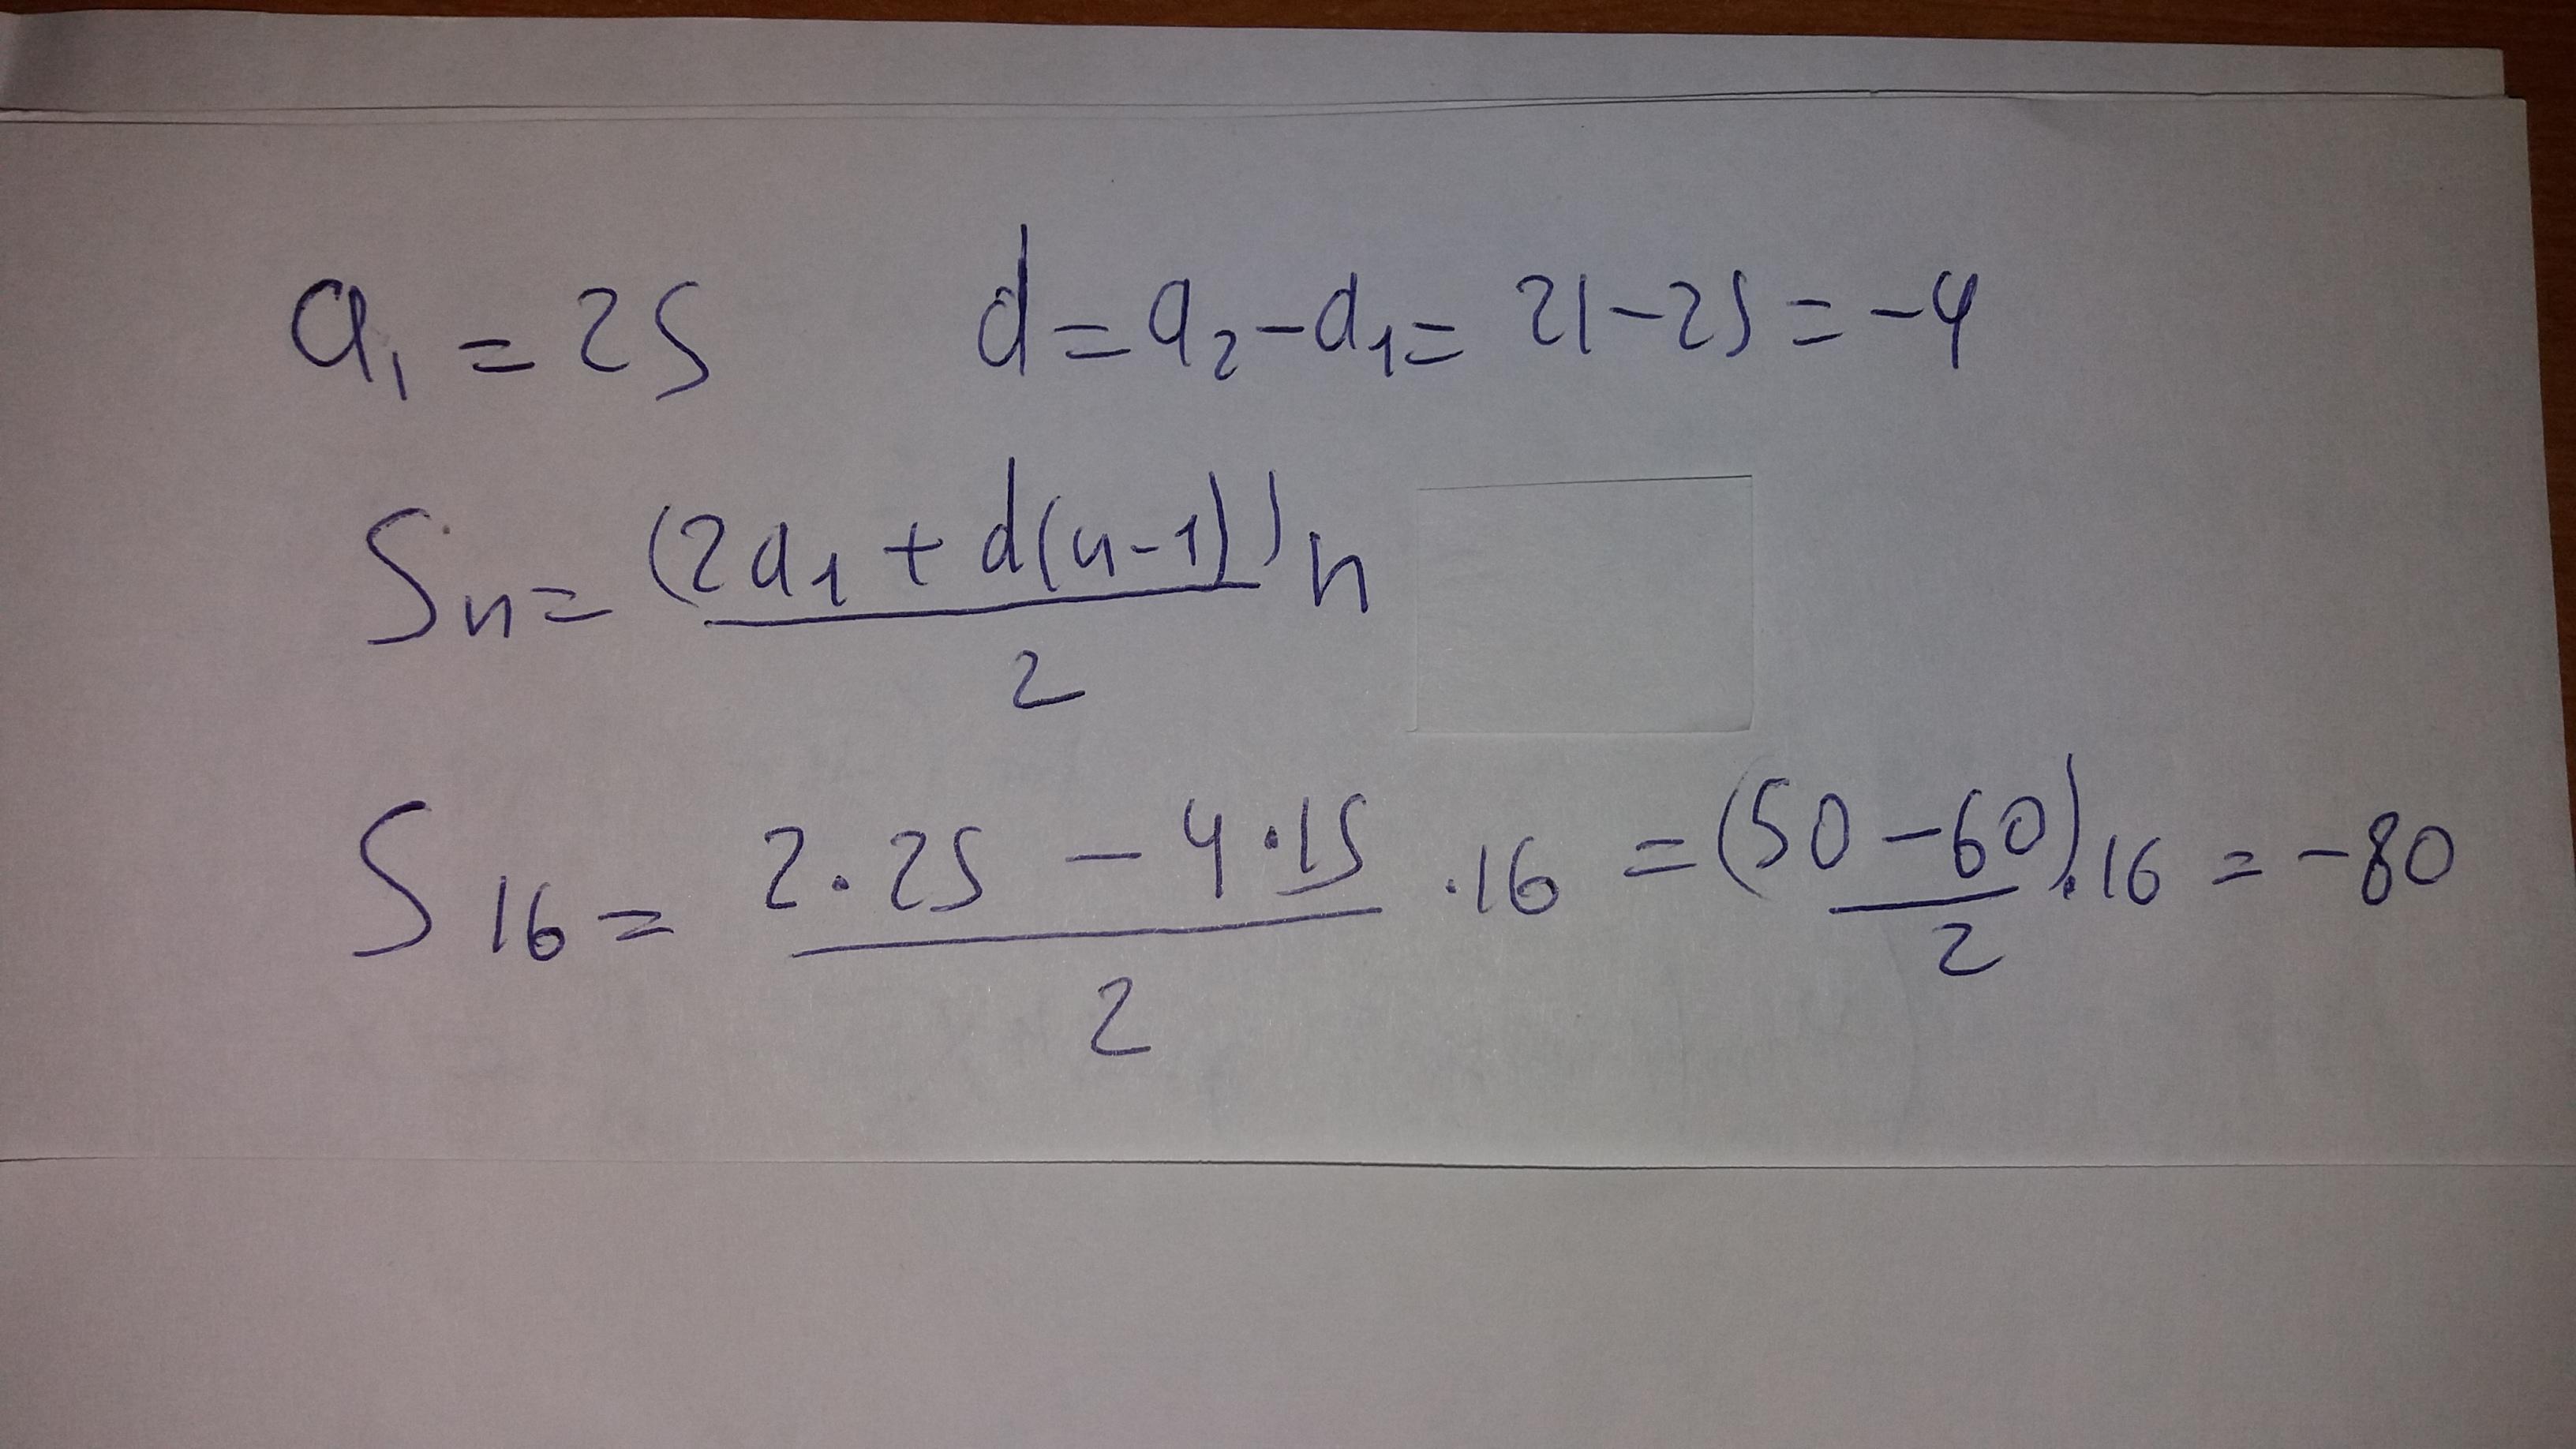 a₁ = 25 d = a₂ - a₁ = 21 - 25 = -4
Sn = (2a₁ + d(n-1))/2 n
S16 = (2·25 - 4·15)/2 ·16 = (50 - 60)/2 ·16 = -80